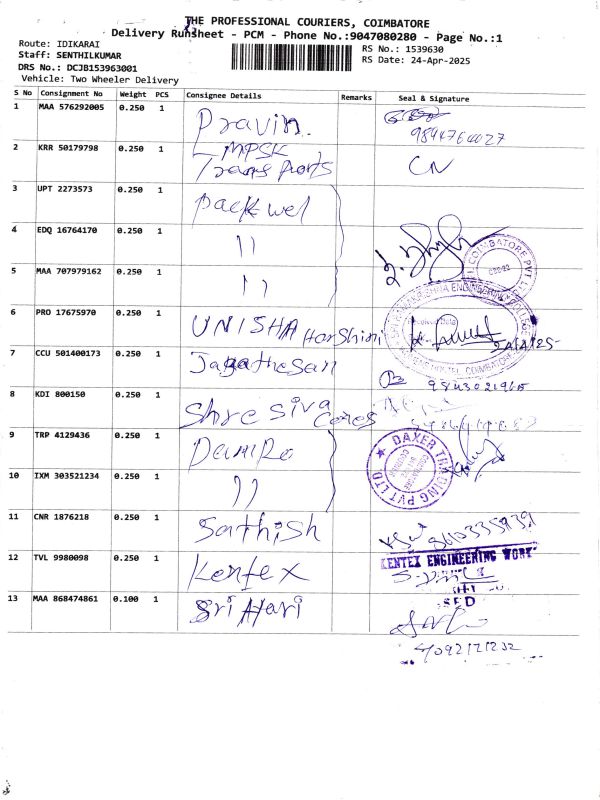 THE PROFESSIONAL COURIERS, COIMBATORE
Delivery Runsheet - PCM - Phone No.:9047080280 - Page No.:1
Route: IDIKARAI
Staff: SENTHILKUMAR
DRS No.: DCJB153963001
Vehicle: Two Wheeler Delivery
RS No.: 1539630
RS Date: 24-Apr-2025
S No Consignment No Weight PCS Consignee Details Remarks Seal & Signature
1 MAA 576292005 0.250 1 Pravin.
2 KRR 50179798 0.250 1 MPSK Transports CN
3 UPT 2273573 0.250 1 packwel
4 EDQ 16764170 0.250 1 "
COIMBATORE PVT LTD
5 MAA 707979162 0.250 1 "
6 PRO 17675970 0.250 1 UNISHA Harshini
7 CCU 501400173 0.250 1 Jagathesan
8 KDI 800150 0.250 1 Shree Siva
9 TRP 4129436 0.250 1
DAXER TRADING PVT LTD
10 IXM 303521234 0.250 1 "
11 CNR 1876218 0.250 1 Sathish
12 TVL 9980098 0.250 1 Kentex
KENTEX ENGINEERING WORK
13 MAA 868474861 0.100 1 Sri Hari